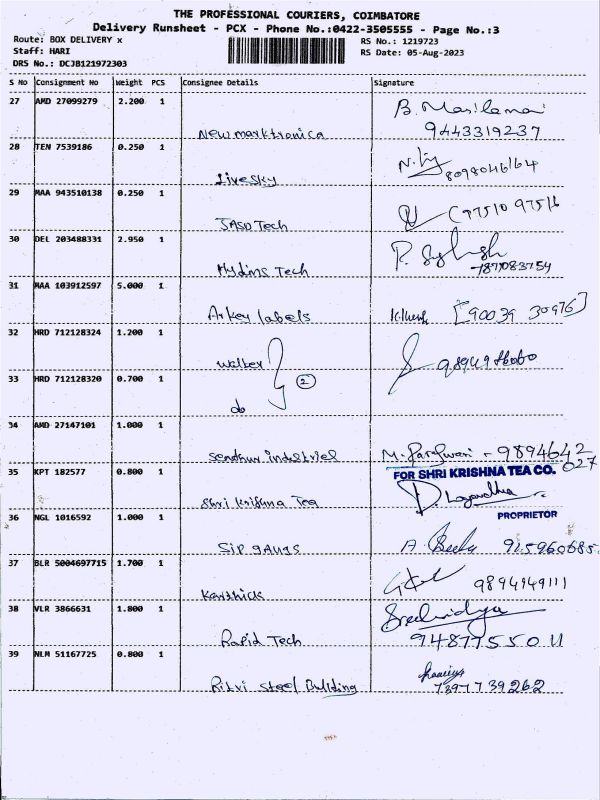 THE PROFESSIONAL COURIERS, COIMBATORE
Delivery Runsheet - PCX - Phone No.:0422-3505555 - Page No.:3
Route: BOX DELIVERY x
RS No.: 1219723
Staff: HARI
RS Date: 05-Aug-2023
DRS No.: DCJB121972303
S No Consignment No Weight PCS Consignee Details Signature
27 AMD 27099279 2.200 1
Newmarktronica 9443319237
28 TEN 7539186 0.250 1
Livesky 8098046164
29 MAA 943510138 0.250 1
JASO Tech 97510 97516
30 DEL 203488331 2.950 1
Hydins Tech 787083754
31 MAA 103912597 5.000 1
Arkey labels [90039 30976]
32 HRD 712128324 1.200 1
walker 2
33 HRD 712128320 0.700 1
do
34 AMD 27147101 1.000 1
9894642
027
35 KPT 182577 0.800 1 FOR SHRI KRISHNA TEA CO.
Shri Krishna Tea
PROPRIETOR
36 NGL 1016592 1.000 1
915960685
37 BLR 5004697715 1.700 1
Karthick 9894949111
38 VLR 3866631 1.800 1 Sreevidya
Rapid Tech
39 NLM 51167725 0.800 1
Steel Building 7397739262